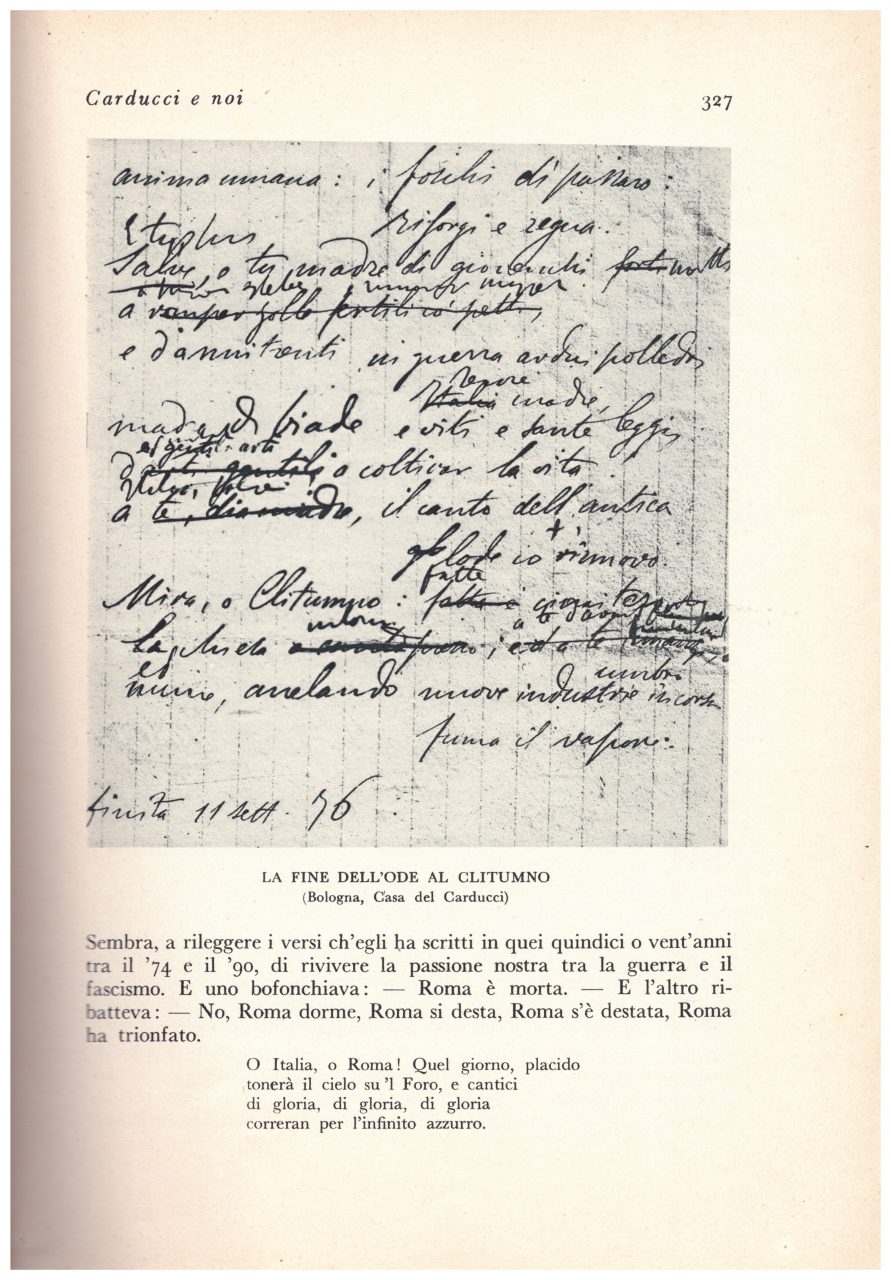 Carducci e noi 327
anima umana:
risorgi e regna.
Salve, o tu madre di giovenchi invitti
a romper glebe
e d'annitrenti in guerra ardui polledri
Italia madre,
madre di biade e viti e sante leggi
ed gentili arti
o coltivar la vita
salvi
a te, il canto dell'antica
lode io rinnovo.
fatte
Mira, o Clitumno:
ed a te
umbri
nume, anelando nuove industrie in corsa
fuma il vapore.
finita 11 sett. 76
LA FINE DELL'ODE AL CLITUMNO
(Bologna, Casa del Carducci)
Sembra, a rileggere i versi ch'egli ha scritti in quei quindici o vent'anni
tra il '74 e il '90, di rivivere la passione nostra tra la guerra e il
fascismo. E uno bofonchiava: — Roma è morta. — E l'altro ri-
batteva: — No, Roma dorme, Roma si desta, Roma s'è destata, Roma
ha trionfato.
O Italia, o Roma! Quel giorno, placido
tonerà il cielo su 'l Foro, e cantici
di gloria, di gloria, di gloria
correran per l'infinito azzurro.